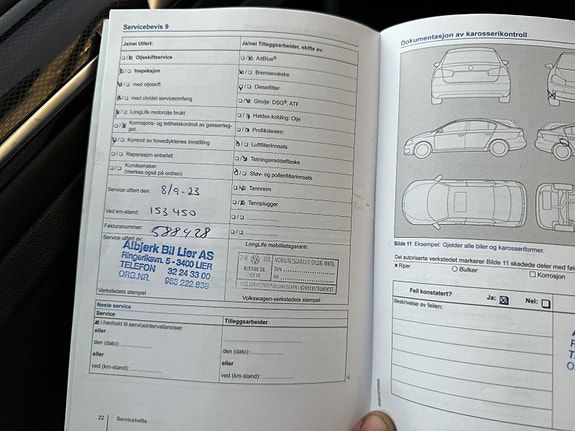 Servicebevis 9
Ja/nei Utført:
Oljeskiftservice
Inspeksjon
med oljeskift
med utvidet serviceomfang
LongLife motorolje brukt
Korrosjons- og tetthetskontroll av gassanleg-
get.
Kontroll av hovedlyktenes innstilling
Reparasjon anbefalt
Kundeønsker
(merkes også på ordren)
Service utført den: 8/9-23
Ved km-stand: 153 450
Fakturanummer: 588928
Service utført av:
Albjerk Bil Lier AS
Ringeriksvn. 5 - 3400 LIER
TELEFON 32 24 33 00
ORG.NR. 963 222 838
Verkstedets stempel
Ja/nei Tilleggsarbeider, skifte av:
AdBlue®
Bremsevæske
Dieselfilter
Girolje: DSG®, ATF
Haldex-kobling: Olje
Profilkilerem:
Luftfilterinnsats
Tetningsmiddelflaske
Støv- og pollenfilterinnsats
Tannreim
Tennplugger
LongLife mobilitetsgaranti:
Volkswagen-verkstedets stempel
Neste service
Service
Tilleggsarbeider
I henhold til serviceintervallanviser
eller
den (dato):
eller
ved (km-stand):
den (dato):
eller
ved (km-stand):
22 Servicehefte
Dokumentasjon av karosserikontroll
Bilde 11 Eksempel: Gjelder alle biler og karosseriformer.
Det autoriserte verkstedet markerer Bilde 11 skadede deler med
× Riper
Bulker
Korrosjon
Feil konstatert?
Ja:
Nei:
Beskrivelse av feilen: